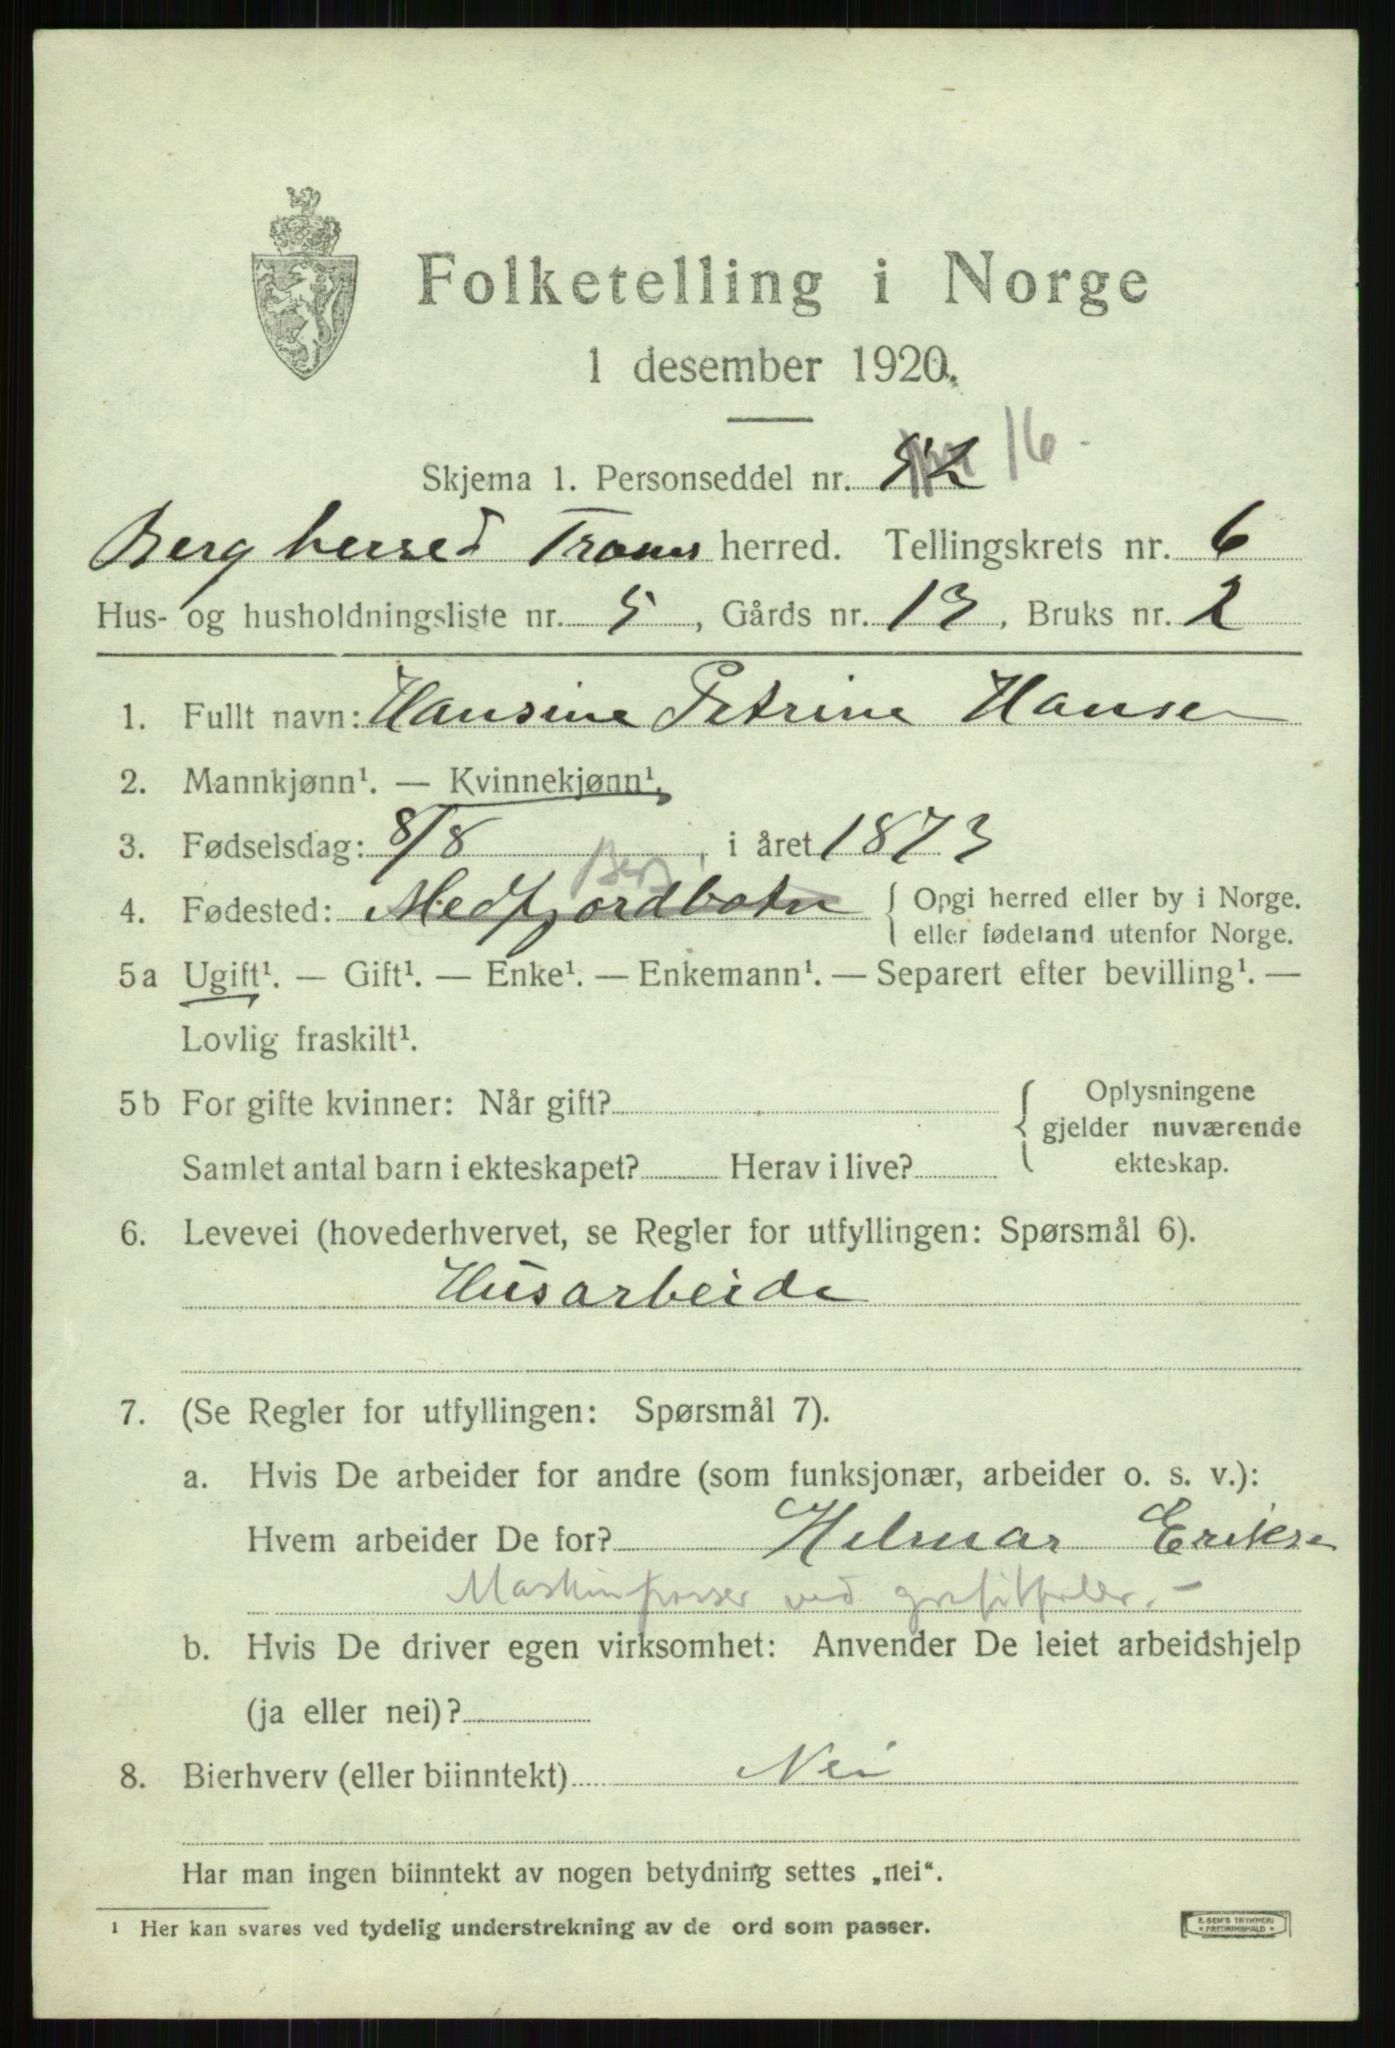 Folketelling i Norge
1 desember 1920.
Skjema 1. Personseddel nr. 16
Berg herred Troms herred. Tellingskrets nr. 6
Hus- og husholdningsliste nr. 5, Gårds nr. 13, Bruks nr. 2
1. Fullt navn: Hansine Petrine Hansen
2. Mannkjønn¹. — Kvinnekjønn¹.
3. Fødselsdag: 8/8, i året 1873
Berg
4. Fødested: Medfjordbotn { Opgi herred eller by i Norge.
eller fødeland utenfor Norge.
5a Ugift¹. — Gift¹. — Enke¹. — Enkemann¹. — Separert efter bevilling¹. —
Lovlig fraskilt¹.
5b For gifte kvinner: Når gift? { Oplysningene
gjelder nuværende
Samlet antal barn i ekteskapet? Herav i live? ekteskap.
6. Levevei (hovederhvervet, se Regler for utfyllingen: Spørsmål 6).
Husarbeide
7. (Se Regler for utfyllingen: Spørsmål 7).
a. Hvis De arbeider for andre (som funksjonær, arbeider o. s. v.):
Hvem arbeider De for? Helmar Eriksen
Maskinpasser ved
b. Hvis De driver egen virksomhet: Anvender De leiet arbeidshjelp
(ja eller nei)?
8. Bierhverv (eller biinntekt) Nei
Har man ingen biinntekt av nogen betydning settes „nei“.
¹ Her kan svares ved tydelig understrekning av de ord som passer.
E. SEM'S TRYKKERI
* FREDRIKSHALD *